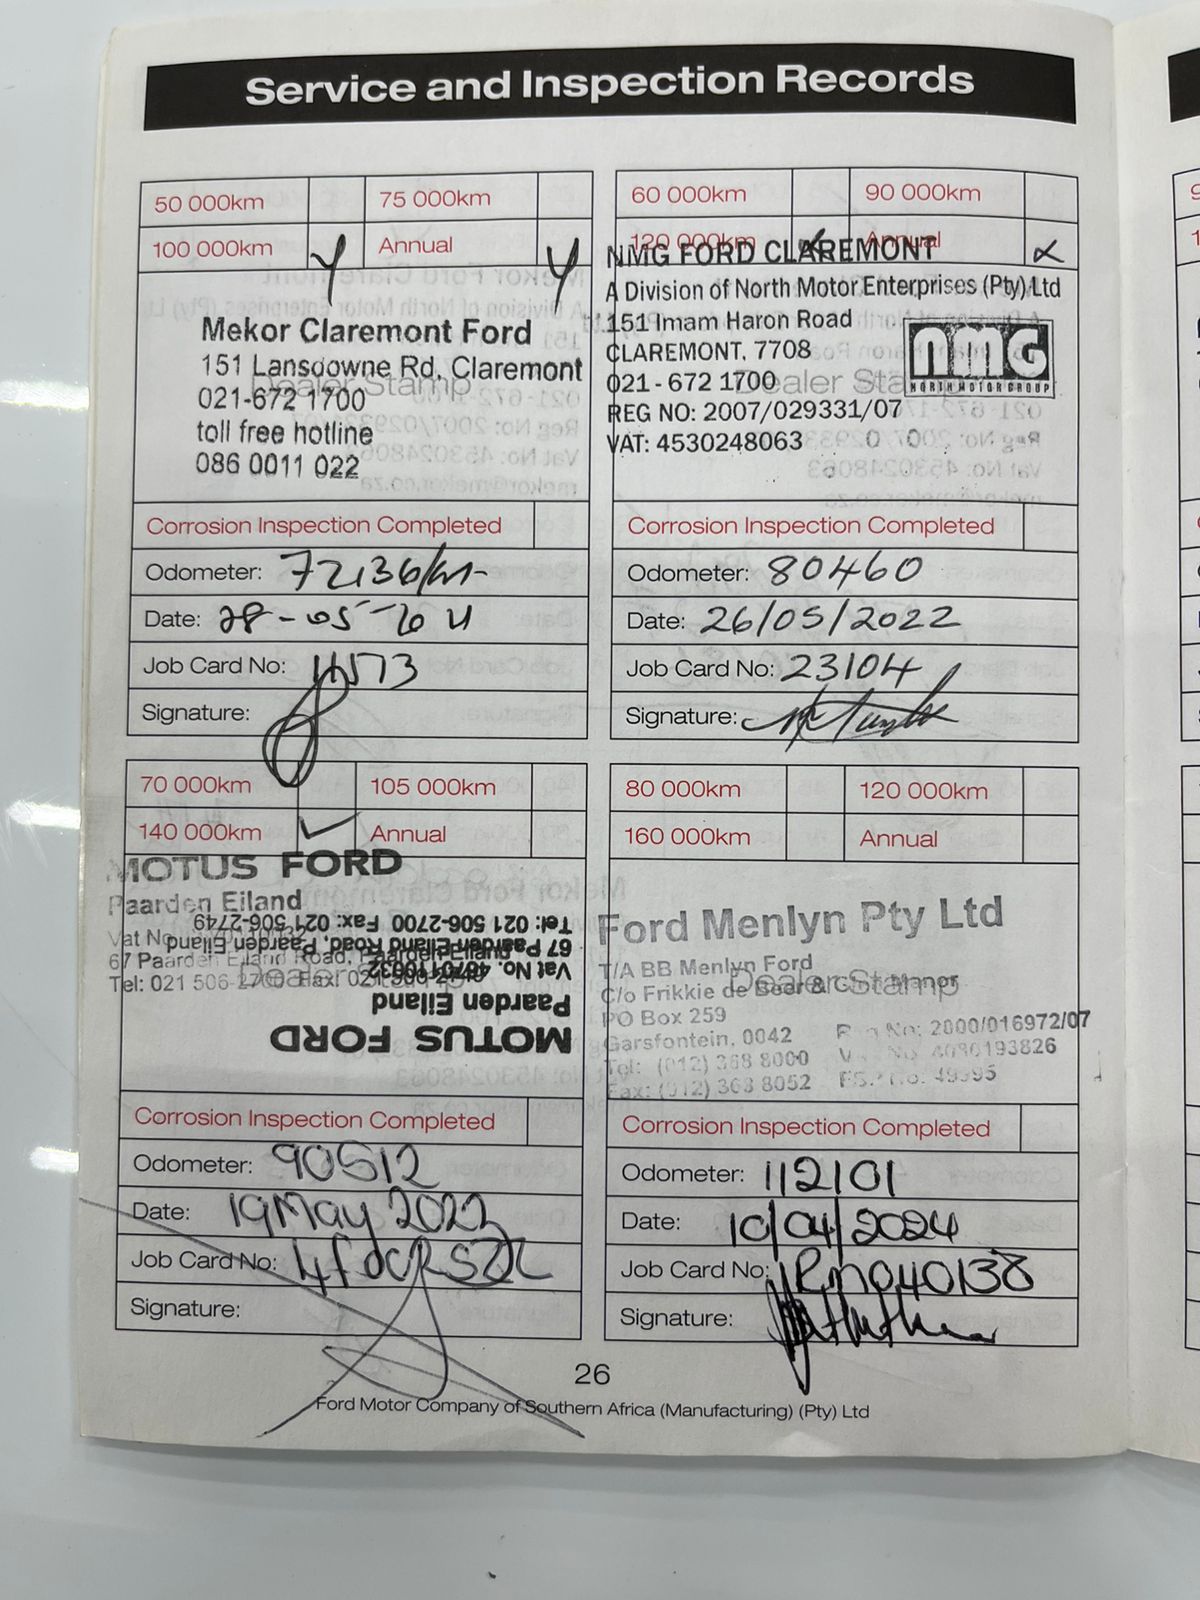 Service and Inspection Records
50 000km
75 000km
100 000km
Annual
Mekor Claremont Ford
151 Lansdowne Rd, Claremont
Dealer Stamp
021-672 1700
toll free hotline
086 0011 022
Corrosion Inspection Completed
Odometer: 72136km
Date: 28-05-
Job Card No:
Signature:
60 000km
90 000km
120 000km
Annual
NMG FORD CLAREMONT
A Division of North Motor Enterprises (Pty) Ltd
151 Imam Haron Road
CLAREMONT, 7708
nmg
NORTH MOTOR GROUP
021 - 672 1700
Dealer Stamp
REG NO: 2007/029331/07
VAT: 4530248063
Corrosion Inspection Completed
Odometer: 80460
Date: 26/05/2022
Job Card No: 23104
Signature:
70 000km
105 000km
140 000km
Annual
MOTUS FORD
Paarden Eiland
Vat No
67 Paarden Eiland Road, Paarden Eiland
Tel: 021 506-2700 Fax: 021 506-2749
Dealer Stamp
MOTUS FORD
Paarden Eiland
Vat No.
67 Paarden Eiland Road, Paarden Eiland
Tel: 021 506-2700 Fax: 021 506-2749
Corrosion Inspection Completed
Odometer: 90512
Date: 19 May 2023
Job Card No:
Signature:
80 000km
120 000km
160 000km
Annual
Ford Menlyn Pty Ltd
T/A BB Menlyn Ford
C/o Frikkie de Beer &
Dealer Stamp
PO Box 259
Garsfontein, 0042
Reg No: 2000/016972/07
Tel: (012) 368 8000
Fax: (012) 368 8052
Corrosion Inspection Completed
Odometer: 112101
Date: 10/04/2024
Job Card No:
Signature:
26
Ford Motor Company of Southern Africa (Manufacturing) (Pty) Ltd